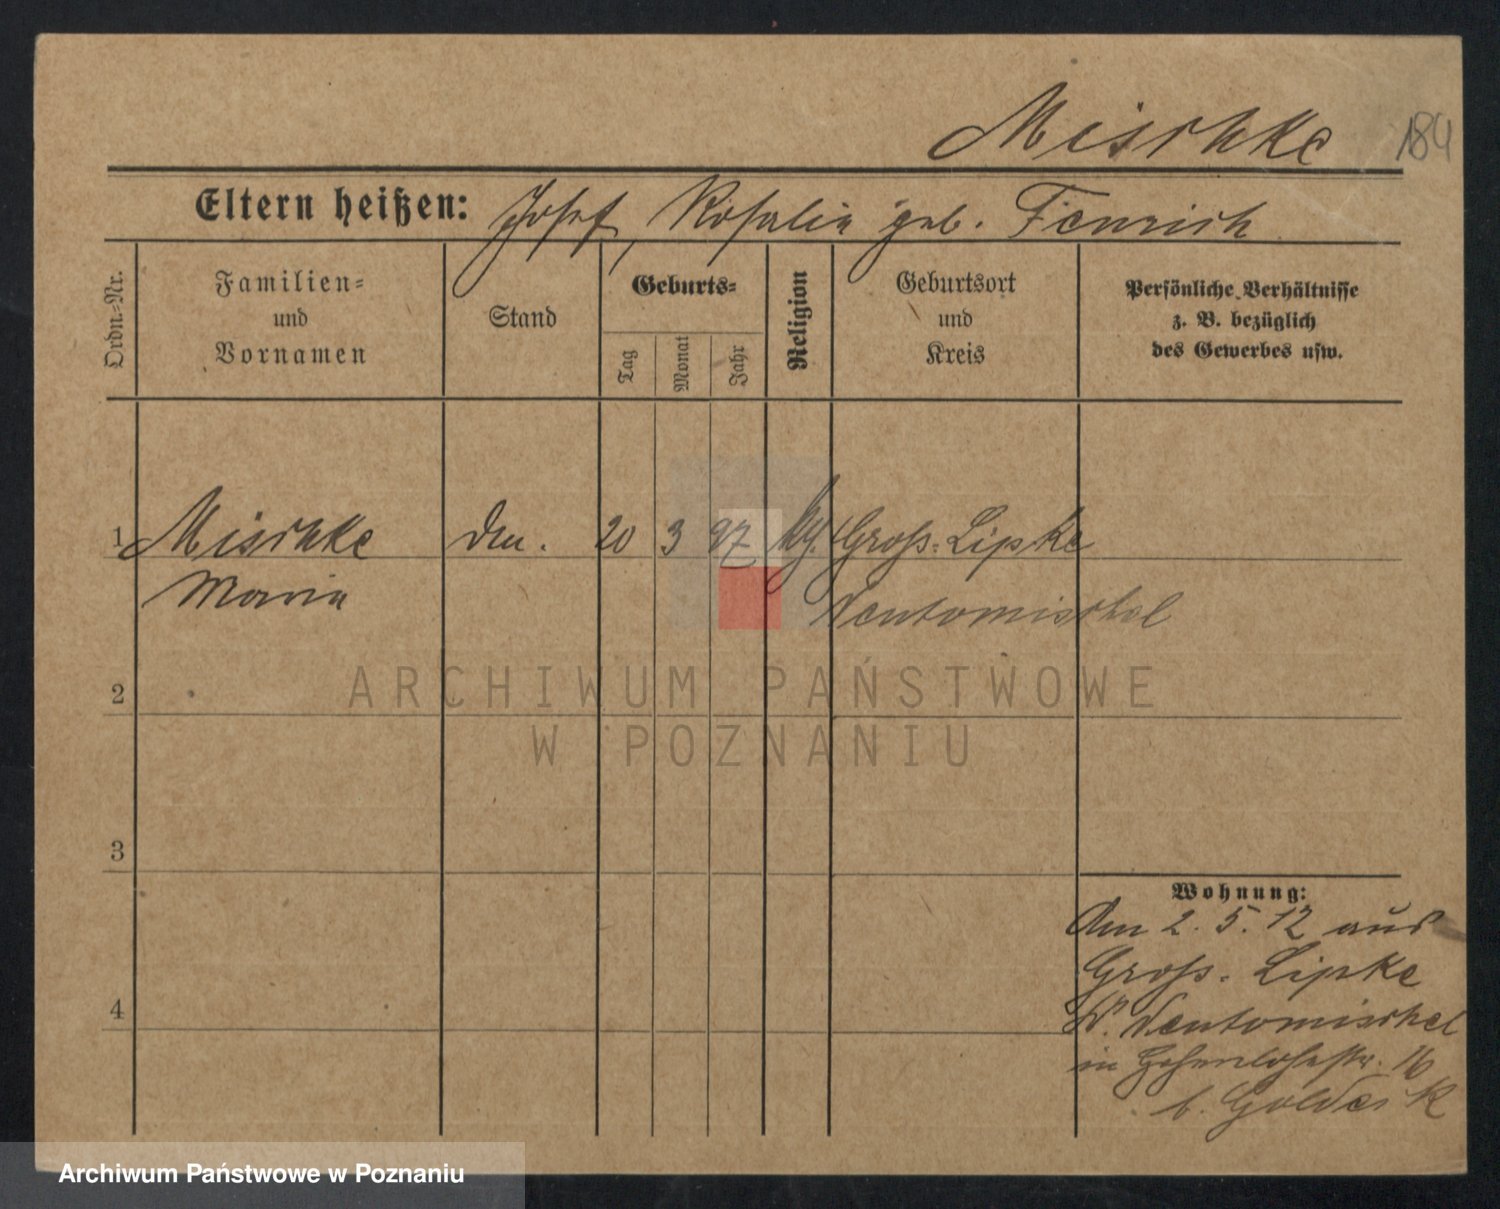 Mischke 184
Eltern heißen: Josef, Rosalie geb. Fenrich
Ordn.-Nr.
Familien-
und
Vornamen
Stand
Geburts-
Tag
Monat
Jahr
Religion
Geburtsort
und
Kreis
Persönliche Verhältnisse
z. B. bezüglich
des Gewerbes usw.
1 Mischke 20 3 97 Groß-Lipke
Maria Neutomischel
2
ARCHIWUM PAŃSTWOWE
W POZNANIU
3
Wohnung:
Am 2.5.12 aus
Groß-Lipke
Neutomischel
in Hohenlohestr. 16
b.
4
Archiwum Państwowe w Poznaniu